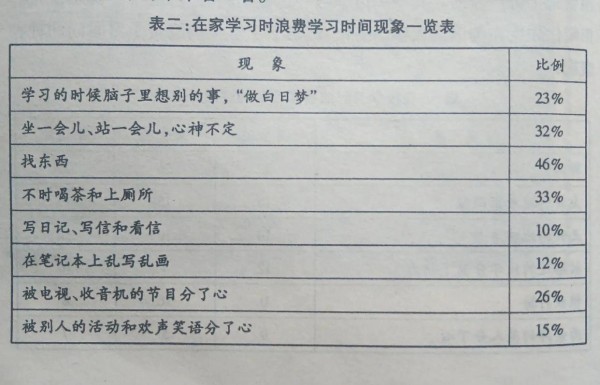 表二:在家学习时浪费学习时间现象一览表
现 象 比例
学习的时候脑子里想别的事,“做白日梦” 23%
坐一会儿、站一会儿,心神不定 32%
找东西 46%
不时喝茶和上厕所 33%
写日记、写信和看信 10%
在笔记本上乱写乱画 12%
被电视、收音机的节目分了心 26%
被别人的活动和欢声笑语分了心 15%